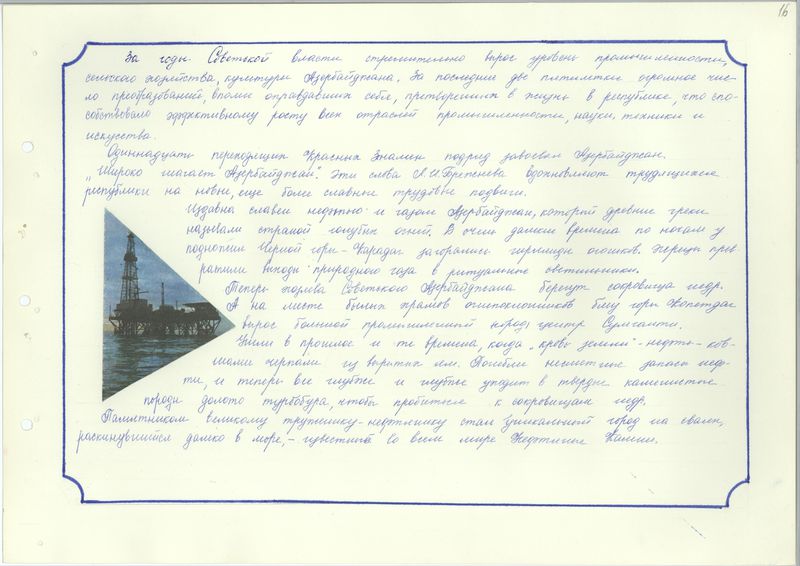 16
За годы Советской власти стремительно вырос уровень промышленности,
сельского хозяйства, культуры Азербайджана. За последние две пятилетки огромное чис-
ло преобразований, вполне оправдавших себя, претворенных в жизнь в республике, что спо-
собствовало эффективному росту всех отраслей промышленности, науки, техники и
искусства.
Одиннадцать переходящих Красных Знамен подряд завоевал Азербайджан.
„Широко шагает Азербайджан". Эти слова Л.И.Брежнева вдохновляют трудящихся
республики на новые, еще более славные трудовые подвиги.
Издавна славен нефтью и газом Азербайджан, который древние греки
называли страной голубых огней. В очень далекие времена по ночам у
подножия Черной горы - Карадаг загорались гирлянды огоньков. Жрецы прев-
ратили выходы природного газа в ритуальные светильники.
Теперь жрецы Советского Азербайджана берегут сокровища недр.
А на месте былых храмов огнепоклонников близ горы
вырос большой промышленный город, центр Сумгаита.
Ушли в прошлое и те времена, когда „кровь земли" - нефть - ков-
шами черпали из вырытых ям. Погибли несметные запасы неф-
ти, и теперь все глубже и глубже уходит в твердые каменистые
породы долото турбобура, чтобы пробиться к сокровищам недр.
Памятником великому труженику-нефтянику стал уникальный город на сваях,
раскинувшийся далеко в море, - известный во всем мире Нефтяные Камни.